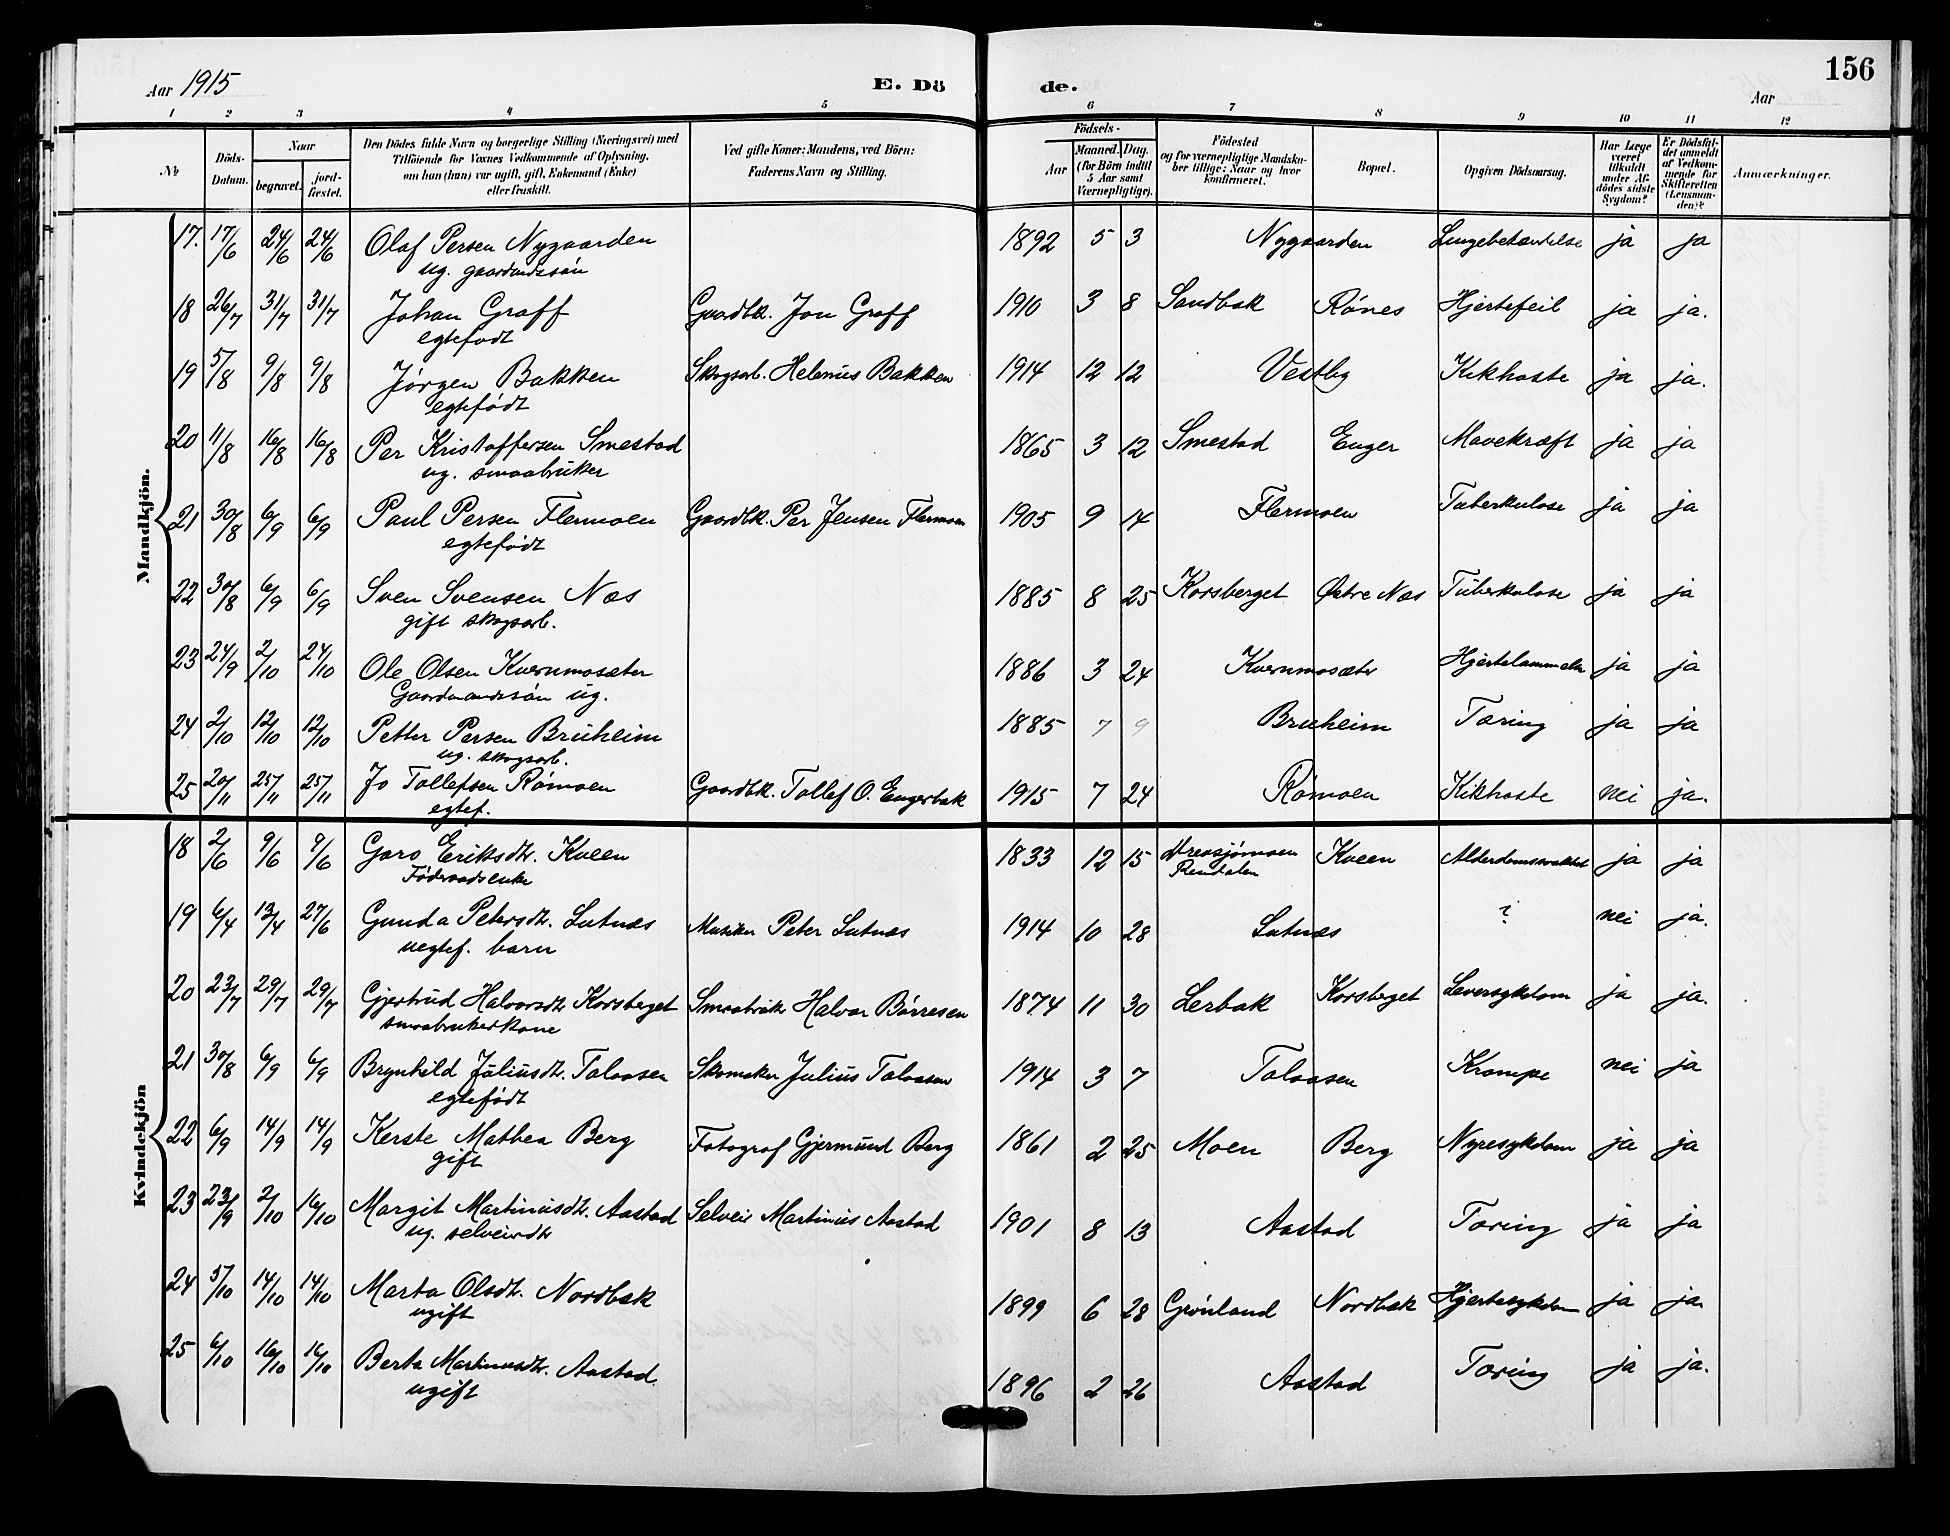 156
Aar 1915
E. Dö
de.
Aar
1 2 3 4 5 6 7 8 9 10 11 12
№ | Döds-Datum. | Naar begravet. | jord-fæstet. | Den Dödes fulde Navn og borgerlige Stilling (Næringsvei) med Tilföiende for Voxnes Vedkommende af Oplysning, om han (hun) var ugift, gift, Enkemand (Enke) eller fraskilt. | Ved gifte Koner: Mandens, ved Börn: Faderens Navn og Stilling. | Födsels- Aar | Maaned. | Dag. (for Börn indtil 5 Aar samt Værnepligtige). | Födested og for værnepligtige Mandska-ber tillige: Naar og hvor Konfirmeret. | Bopæl. | Opgiven Dödsaarsag. | Har Læge været tilkaldt under Af-dödes sidste Sygdom? | Er Dödsfal-det anmeldt af Vedkom-mende for Skifteretten (Lensman-den)? | Anmærkninger.
Mandkjön.
17. 17/6 24/6 24/6 Olaf Persen Nygaarden 1892 5 3 Nygaarden Lungebetændelse ja ja
ug. gaardmandssön
18 26/7 31/7 31/7 Johan Graff Gaardbk. Jon Graff 1910 3 8 Sandbak Rönes Hjertefeil ja ja.
egtefödt
19 5/8 9/8 9/8 Jörgen Bakken Skogsarb. Helenius Bakken 1914 12 12 Vestby Kikhoste ja ja.
egtefödt
20 11/8 16/8 16/8 Per Kristoffersen Smestad 1865 3 12 Smestad Enger Mavekræft ja ja
ug. smaabruker
21 30/8 6/9 6/9 Paul Persen Flermoen Gaardbk. Per Jensen Flermoen 1905 9 14 Flermoen Tuberkulose ja ja
egtefödt
22 30/8 6/9 6/9 Sven Svensen Næs 1885 8 25 Korsberget Östre Næs Tuberkulose ja ja
gift skogsarb.
23 24/9 2/10 24/10 Ole Olsen Kvernmosæter 1886 3 24 Kvernmosæter Hjertelammelse ja ja
Gaardmandssön ug.
24 2/10 12/10 12/10 Petter Persen Bruheim 1885 7 9 Bruheim Tæring ja ja
ug. skogsarb.
25 20/11 25/11 25/11 Jo Tollefsen Römoen Gaardbk. Tollef O. Engerbak 1915 7 24 Römoen Kikhoste nei ja.
egtef.
Kvindekjön
18 2/6 9/6 9/6 Garo Eriksdtr. Kveen 1833 12 15 Kveen Alderdomssvakhet ja ja
Föderaadsenke Rendalen
19 6/4 13/4 27/6 Gunda Petersdtr. Lutnæs Musiker Peter Lutnæs 1914 10 28 Lutnæs ? nei ja.
uegtef. barn
20 23/7 29/7 29/7 Gjertrud Halvorsdtr. Korsberget Smaabruk. Halvor Börresen 1874 11 30 Lerbak Korsberget Leversykdom ja ja.
smaabrukerkone
21 30/8 6/9 6/9 Brynhild Juliusdtr. Talaasen Skomaker Julius Talaasen 1914 3 7 Talaasen Krampe nei ja
egtefödt
22 6/9 14/9 14/9 Kerste Mathea Berg Fotograf Gjermund Berg 1861 2 25 Moen Berg Nyresykdom ja ja
gift
23 23/9 2/10 16/10 Margit Martinusdtr. Aastad Selveir Martinus Aastad 1901 8 13 Aastad Tæring ja ja
ug. selveirdtr.
24 5/10 14/10 14/10 Marta Olsdtr. Nordbak 1899 6 28 Grönland Nordbak Hjertesykdom ja ja
ugift
25 6/10 16/10 16/10 Berta Martinusdtr. Aastad 1896 2 26 Aastad Tæring ja ja.
ugift